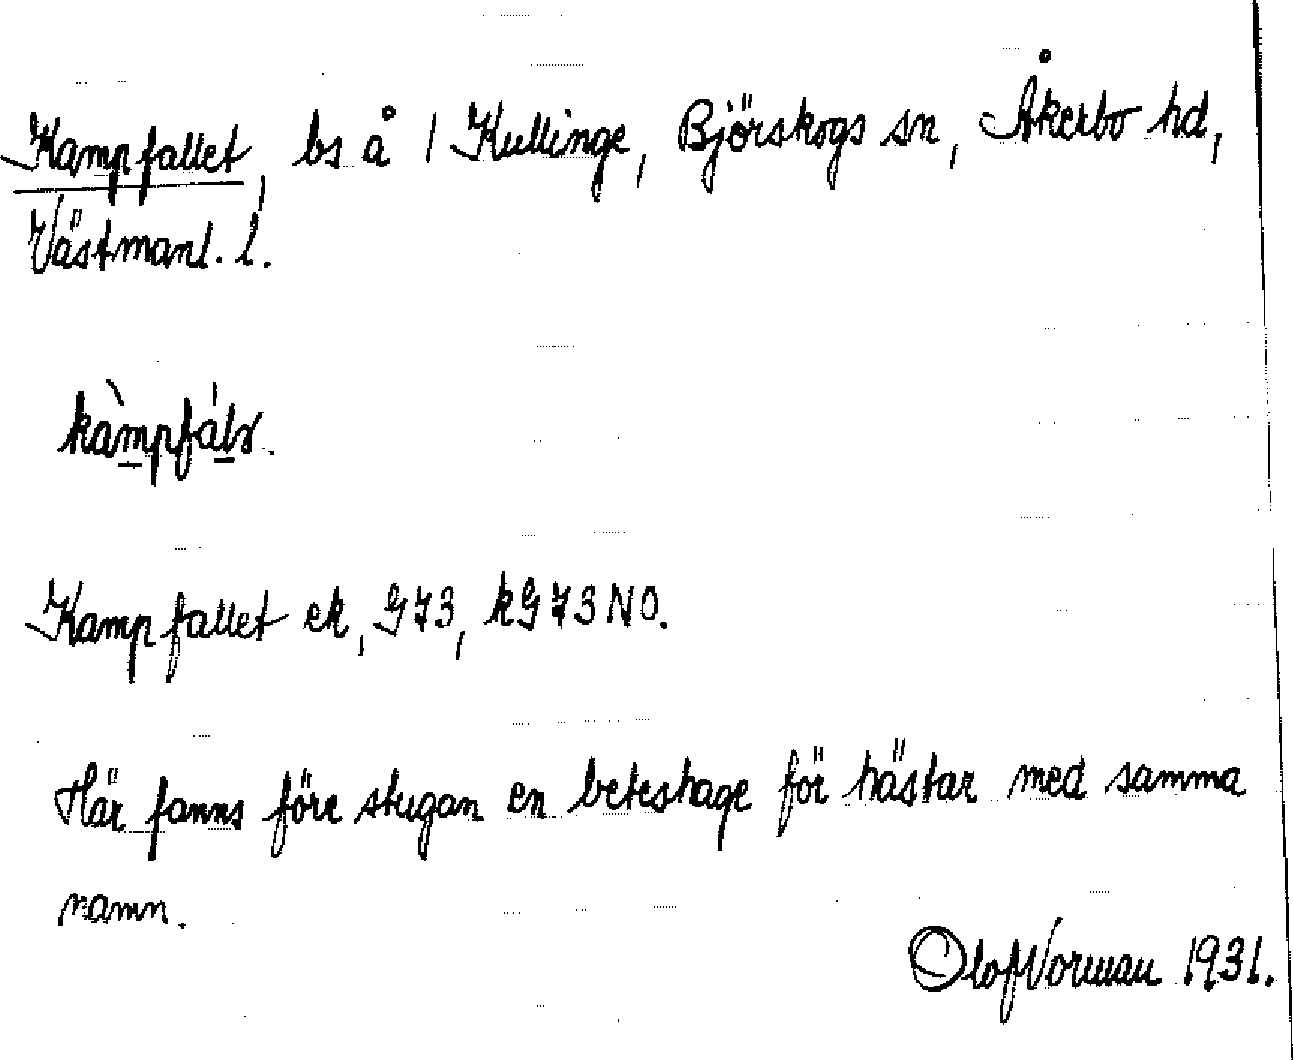 Kampfallet, bs å 1 Kullinge, Björskogs sn, Åkerbo hd,
Västmanl. l.
Kampfallet ek, G73, kG73NO.
Här fanns före stugan en beteshage för hästar med samma
namn.
Olof Norman 1931.